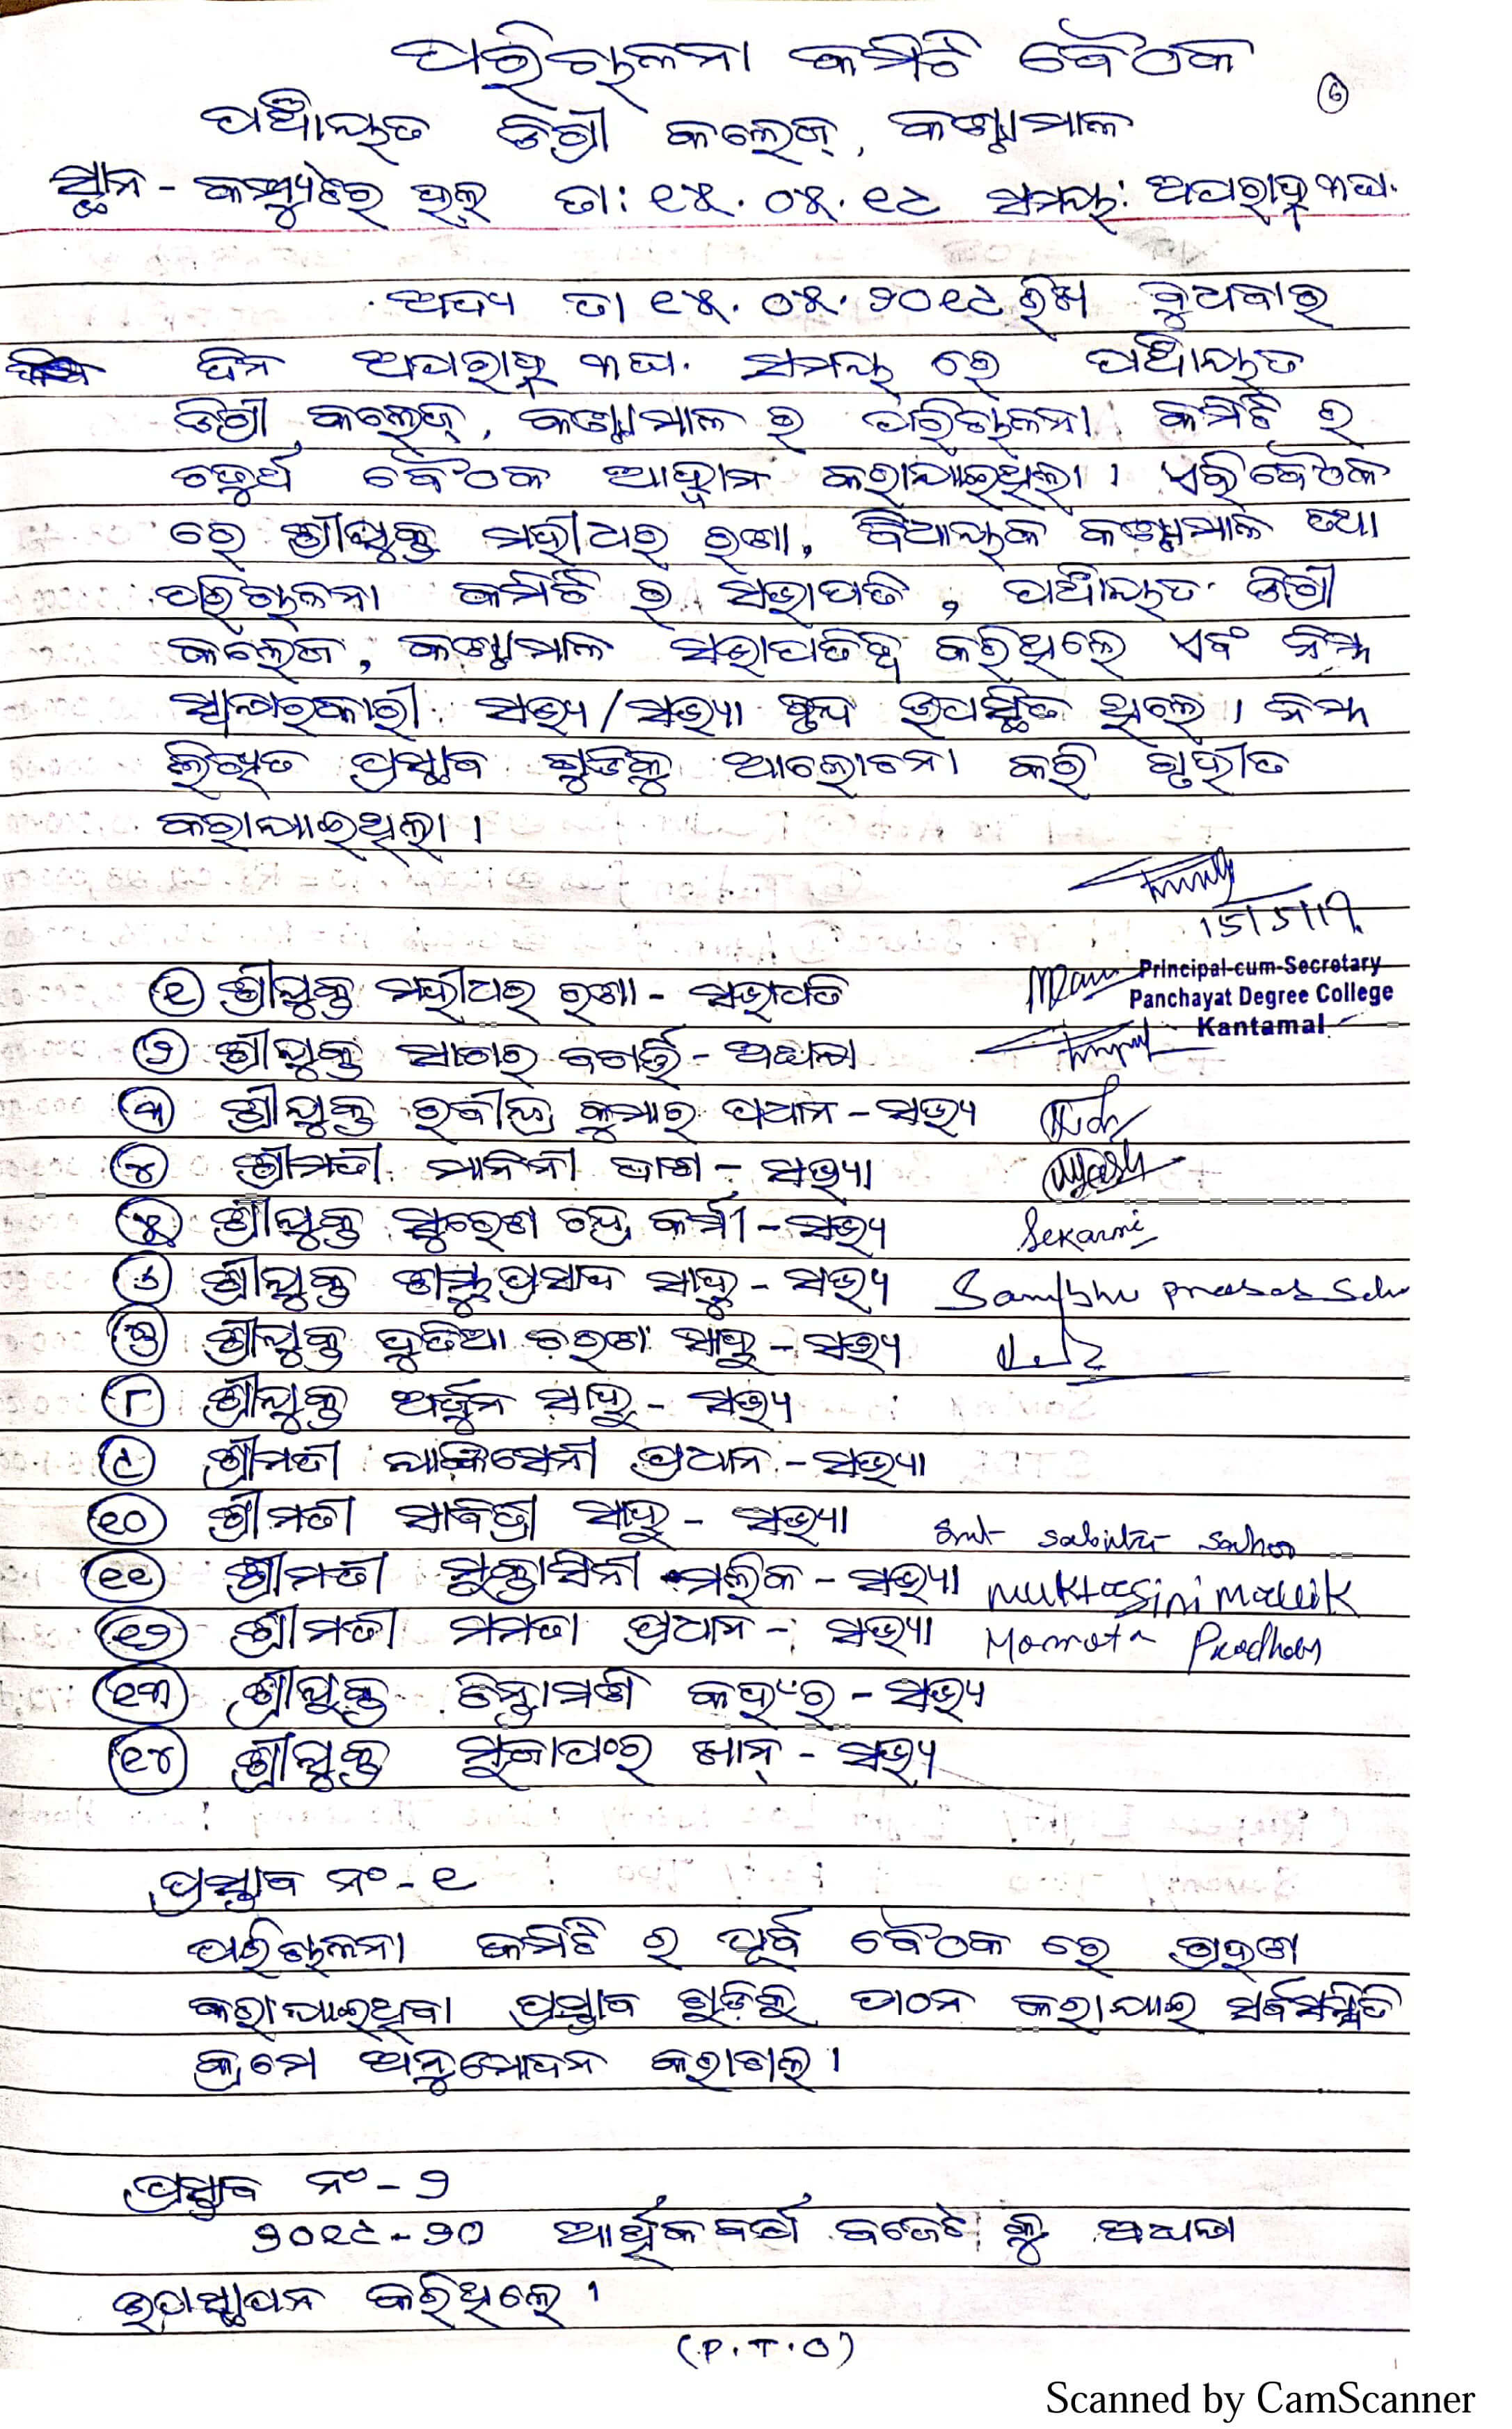 ପରିଚାଳନା କମିଟି ବୈଠକ
୬
ପଞ୍ଚାୟତ ଡିଗ୍ରୀ କଲେଜ୍, କଣ୍ଟାମାଳ
ସ୍ଥାନ - କମ୍ପ୍ୟୁଟର ହଲ୍ ତା: ୧୫.୦୫.୧୯ ସମୟ: ଅପରାହ୍ନ ୩ଘ.
ଅଦ୍ୟ ତା ୧୫.୦୫.୨୦୧୯ ରିଖ ବୁଧବାର
ଦିନ ଅପରାହ୍ନ ୩ଘ. ସମୟ ରେ ପଞ୍ଚାୟତ
ଡିଗ୍ରୀ କଲେଜ୍, କଣ୍ଟାମାଳ ର ପରିଚାଳନା କମିଟି ର
ଚତୁର୍ଥ ବୈଠକ ଆହ୍ୱାନ କରାଯାଇଥିଲା । ଏହି ବୈଠକ
ରେ ଶ୍ରୀଯୁକ୍ତ ମହୀଧର ରଣା, ବିଧାୟକ କଣ୍ଟାମାଳ ତଥା
ପରିଚାଳନା କମିଟି ର ସଭାପତି, ପଞ୍ଚାୟତ ଡିଗ୍ରୀ
କଲେଜ, କଣ୍ଟାମାଳ ସଭାପତିତ୍ୱ କରିଥିଲେ ଏବଂ ନିମ୍ନ
ସ୍ୱାକ୍ଷରକାରୀ ସଭ୍ୟ/ସଭ୍ୟା ବୃନ୍ଦ ଉପସ୍ଥିତ ଥିଲେ । ନିମ୍ନ
ଲିଖିତ ପ୍ରସ୍ତାବ ଗୁଡିକୁ ଆଲୋଚନା କରି ଗୃହୀତ
କରାଯାଇଥିଲା ।
15/5/19
Principal-cum-Secretary
Panchayat Degree College
Kantamal
୧ ଶ୍ରୀଯୁକ୍ତ ମହୀଧର ରଣା - ସଭାପତି
୨ ଶ୍ରୀଯୁକ୍ତ ସାଗର ବଗର୍ତ୍ତି - ଅଧ୍ୟକ୍ଷ
୩ ଶ୍ରୀଯୁକ୍ତ ରବୀନ୍ଦ୍ର କୁମାର ପ୍ରଧାନ - ସଭ୍ୟ
୪ ଶ୍ରୀମତୀ ମାନିନୀ ଦାଶ - ସଭ୍ୟା
୫ ଶ୍ରୀଯୁକ୍ତ ସୁରେଶ ଚନ୍ଦ୍ର କର୍ମୀ - ସଭ୍ୟ Sekarmi
୬ ଶ୍ରୀଯୁକ୍ତ ଶମ୍ଭୁପ୍ରସାଦ ସାହୁ - ସଭ୍ୟ Sambhu prasad Sahu
୭ ଶ୍ରୀଯୁକ୍ତ ଦୁତିଆ ଚରଣ ସାହୁ - ସଭ୍ୟ
୮ ଶ୍ରୀଯୁକ୍ତ ଅର୍ଜୁନ ସାହୁ - ସଭ୍ୟ
୯ ଶ୍ରୀମତୀ ଯାଜ୍ଞସେନୀ ପ୍ରଧାନ - ସଭ୍ୟା
୧୦ ଶ୍ରୀମତୀ ସାବିତ୍ରୀ ସାହୁ - ସଭ୍ୟା Smt sabitri sahoo
୧୧ ଶ୍ରୀମତୀ ମୁକ୍ତାସିନୀ ମଲିକ - ସଭ୍ୟା Muktasini Mallik
୧୨ ଶ୍ରୀମତୀ ମମତା ପ୍ରଧାନ - ସଭ୍ୟା Mamata Pradhan
୧୩ ଶ୍ରୀଯୁକ୍ତ ଚିନ୍ତାମଣି କହଁର - ସଭ୍ୟ
୧୪ ଶ୍ରୀଯୁକ୍ତ ଖାନ୍ - ସଭ୍ୟ
ପ୍ରସ୍ତାବ ନଂ - ୧
ପରିଚାଳନା କମିଟି ର ପୂର୍ବ ବୈଠକ ରେ ଗ୍ରହଣ
କରାଯାଇଥିବା ପ୍ରସ୍ତାବ ଗୁଡ଼ିକୁ ପାଠନ କରାଯାଇ ସର୍ବସମ୍ମତି
କ୍ରମେ ଅନୁମୋଦନ କରାଗଲା ।
ପ୍ରସ୍ତାବ ନଂ - ୨
୨୦୧୯-୨୦ ଆର୍ଥିକ ବର୍ଷ ବଜେଟ କୁ ଅଧ୍ୟକ୍ଷ
ଉପସ୍ଥାପନ କରିଥିଲେ ।
(P.T.O)
Scanned by CamScanner